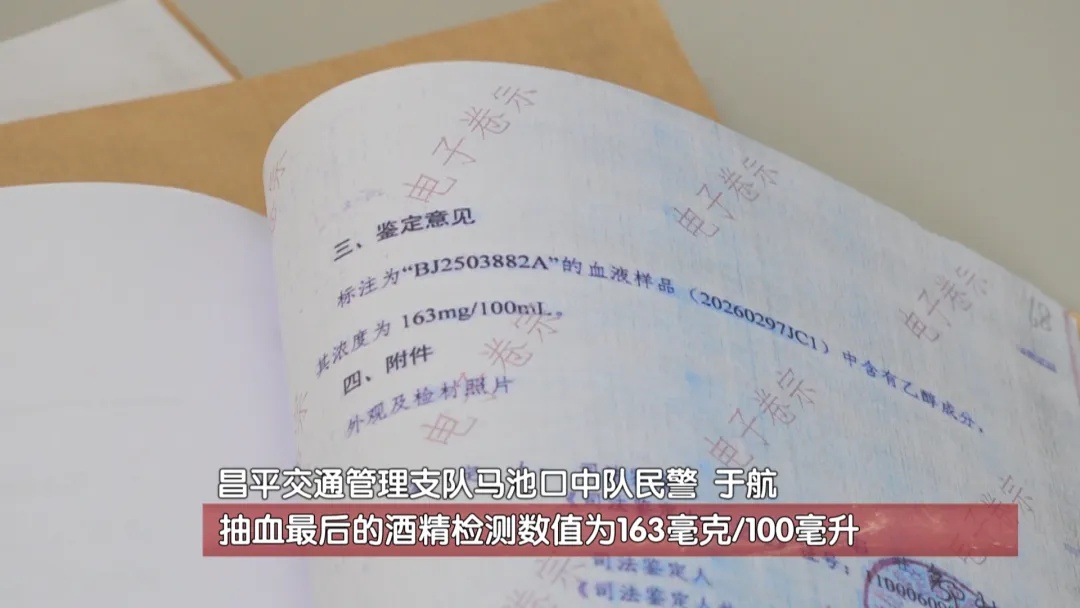 电子卷宗
电子卷宗
电子卷宗
68
三、鉴定意见
标注为“BJ2503882A”的血液样品（20260297JC1）中含有乙醇成分，
其浓度为 163mg/100mL。
四、附件
外观及检材照片
电子卷宗
电子卷宗
昌平交通管理支队马池口中队民警 于航
抽血最后的酒精检测数值为163毫克/100毫升
司法鉴定人
《司法鉴定人